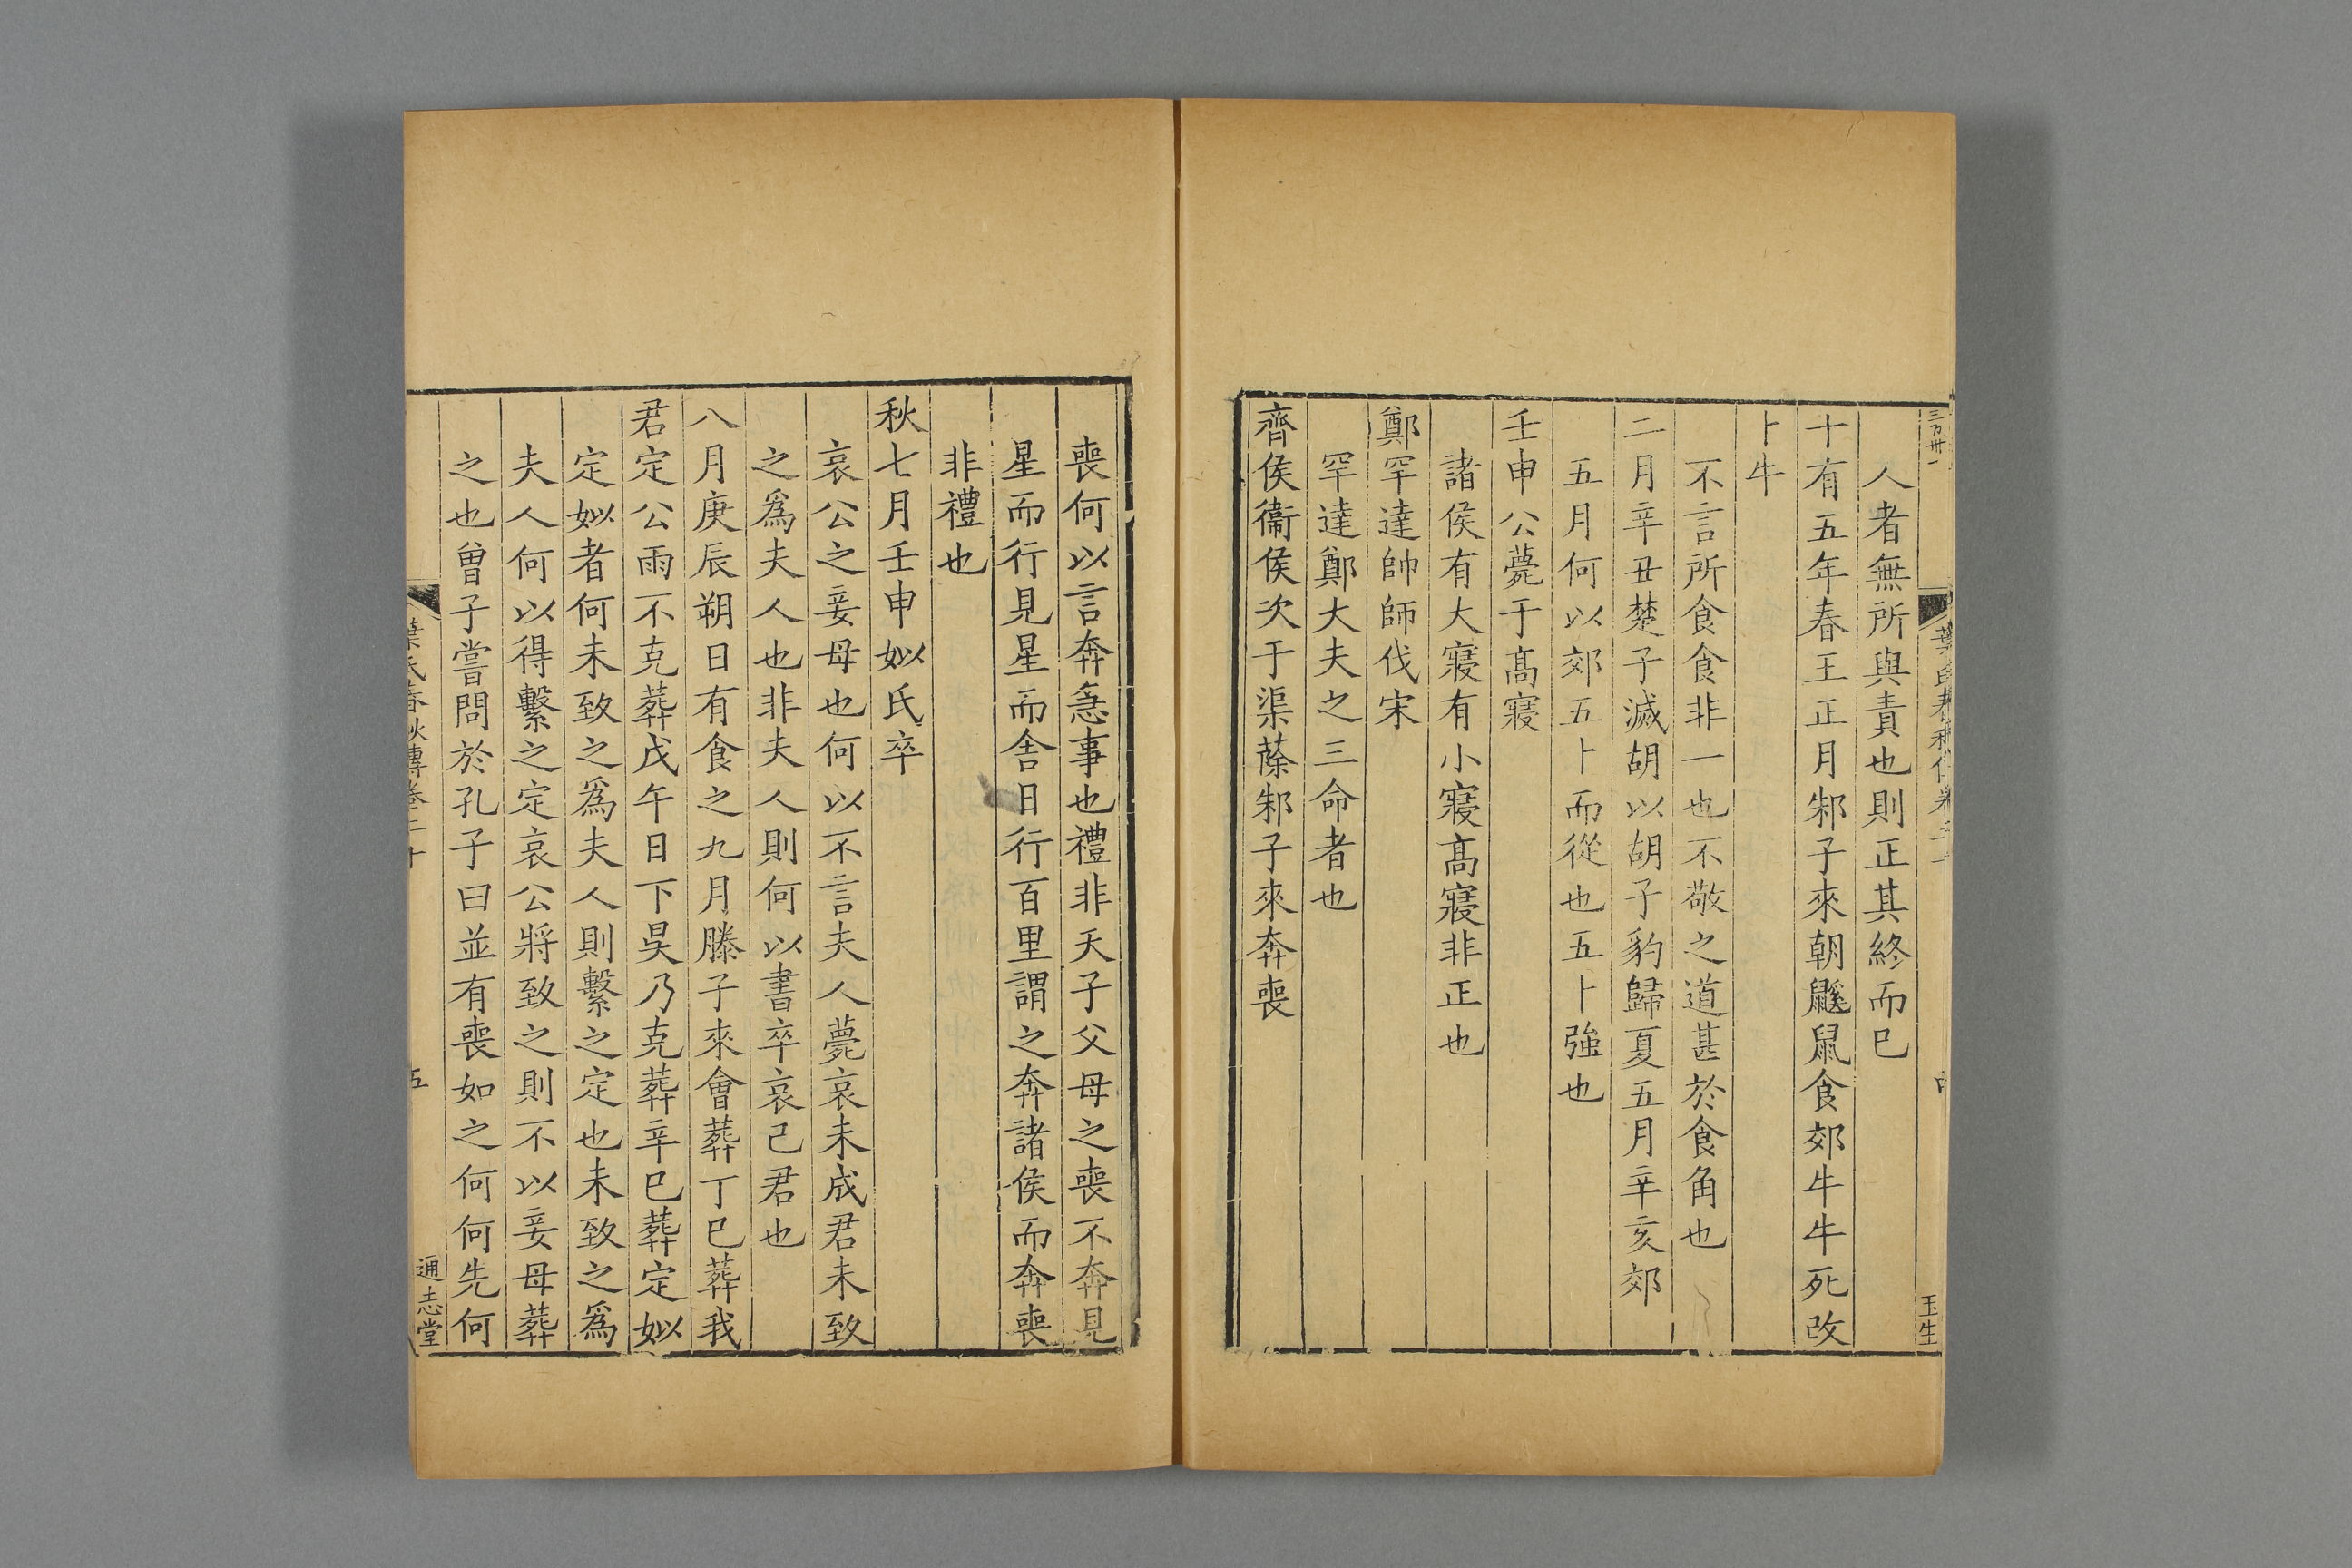 三百卅一
葉氏春秋傳卷二十
玉生
人者無所與責也則正其終而已
十有五年春王正月邾子來朝鼷鼠食郊牛牛死改
卜牛
不言所食食非一也不敬之道甚於食角也
二月辛丑楚子滅胡以胡子豹歸夏五月辛亥郊
五月何以郊五卜而從也五卜強也
壬申公薨于髙寢
諸侯有大寢有小寢髙寢非正也
鄭罕達帥師伐宋
罕達鄭大夫之三命者也
齊侯衞侯次于渠蒢邾子來奔喪
喪何以言奔急事也禮非天子父母之喪不奔見
星而行見星而舎日行百里謂之奔諸侯而奔喪
非禮也
秋七月壬申姒氏卒
哀公之妾母也何以不言夫人薨哀未成君未致
之爲夫人也非夫人則何以書卒哀己君也
八月庚辰朔日有食之九月滕子來會葬丁巳葬我
君定公雨不克葬戊午日下昃乃克葬辛巳葬定姒
定姒者何未致之爲夫人則繫之定也未致之爲
夫人何以得繫之定哀公將致之則不以妾母葬
之也曾子嘗問於孔子曰並有喪如之何何先何
葉氏春秋傳卷二十
五
通志堂